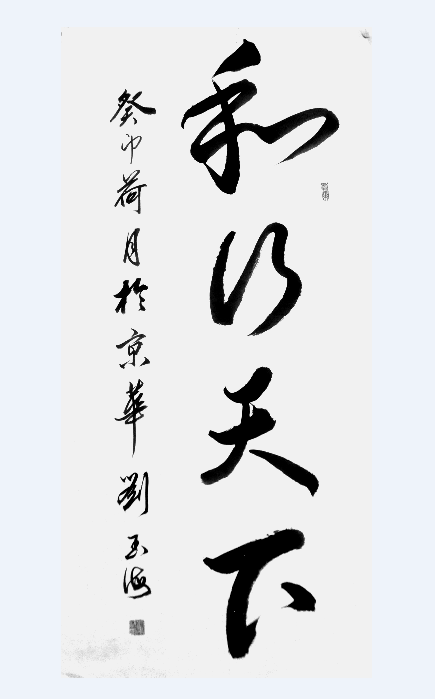 和行天下
癸卯荷月於京華劉玉海